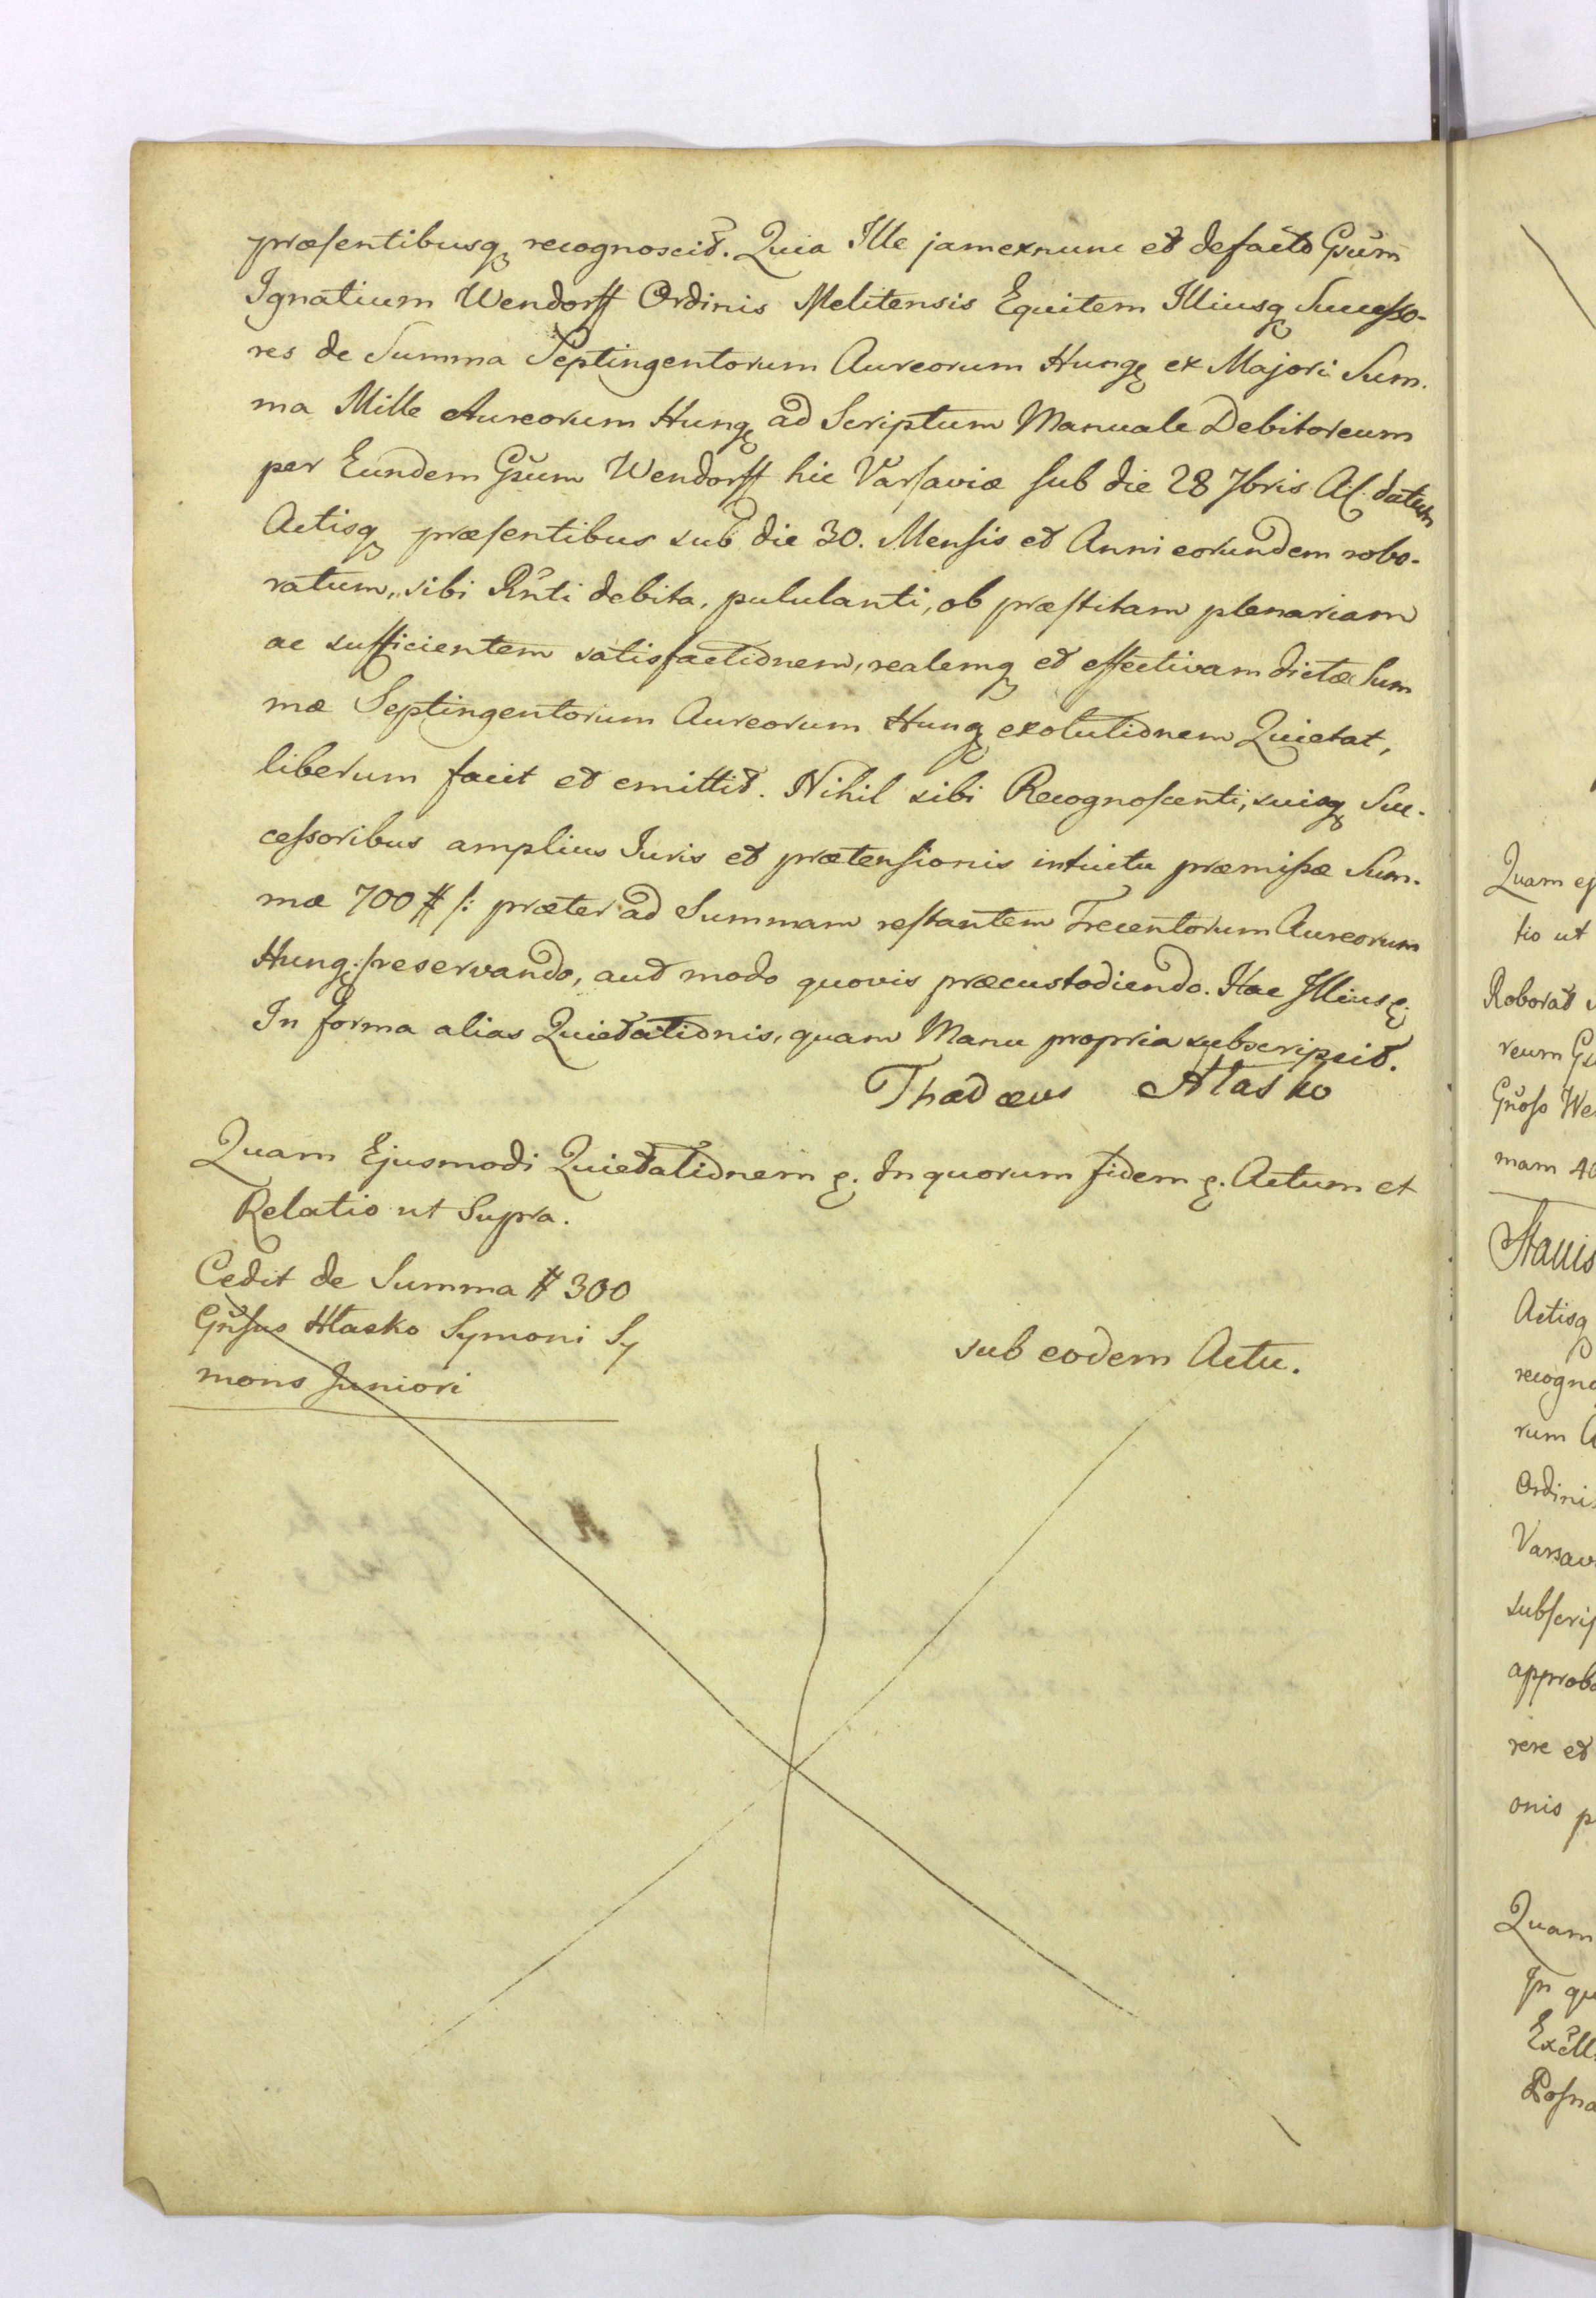 præsentibusq recognoscit. Quia Ille jamexnunc et defacto Gsum
Ignatium Wendorff Ordinis Melitensis Equitem Illiusq Successo-
res de Summa Septingentorum Aureorum Hung ex Majori Sum-
ma Mille Aureorum Hung ad Scriptum Manuale Debitoreum
per Eundem Gsum Wendorff hic Varsaviæ sub die 28 7bris datum
Actisq præsentibus sub die 30. Mensis et Anni eorundem robo-
ratum, sibi Rnti debita, pululanti, ob præstitam plenariam
ac sufficientem satisfactionem, realemq et effectivam dictæ Sum
mæ Septingentorum Aureorum Hung exolutionem Quietat,
liberum facit et emittit. Nihil sibi Recognoscenti, suisq Suc-
cessoribus amplius Juris et prætensionis intuitu præmissæ Sum-
mæ 700 # /: præter ad Summam restantem Trecentorum Aureorum
Hung:/ reservando, aut modo quovis præcustodiendo. Hac Illius
In forma alias Quietationis, quam Manu propria subscripsit.
Thadæus Hłasko
Quam Ejusmodi Quietationem In quorum fidem Actum et
Relatio ut Supra.
Cedit de Summa # 300
Gnsus Hłasko Symoni Sy
mons Juniori
sub eodem Actu.
Quam ej
tio ut
Roborat
reum
Gnoso We
mam
Stanis
Actisq
recogno
rum
Ordini
Varsav
subscrip
approba
rere et
onis p
Quam
In qu
Posna